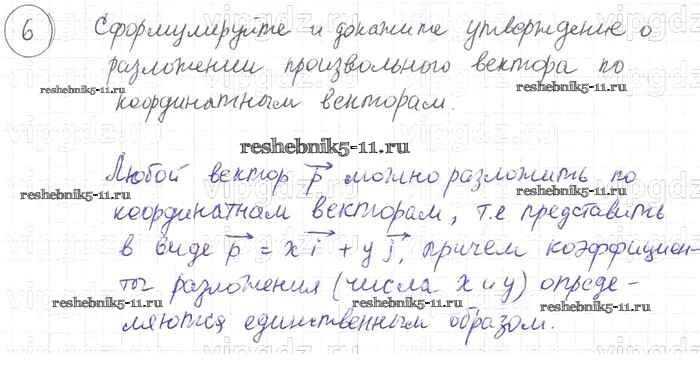 6 Сформулируйте и докажите утверждение о
разложении произвольного вектора по
reshebnik5-11.ru reshebnik5-11.ru
координатным векторам.
reshebnik5-11.ru
Любой вектор p можно разложить по
reshebnik5-11.ru reshebnik5-11.ru
координатнам векторам, т.е представить
в виде p = x i + y j, причем коэффициен-
ты разложения (числа x и y) опреде-
reshebnik5-11.ru reshebnik5-11.ru
ляются единственным образом.
reshebnik5-11.ru